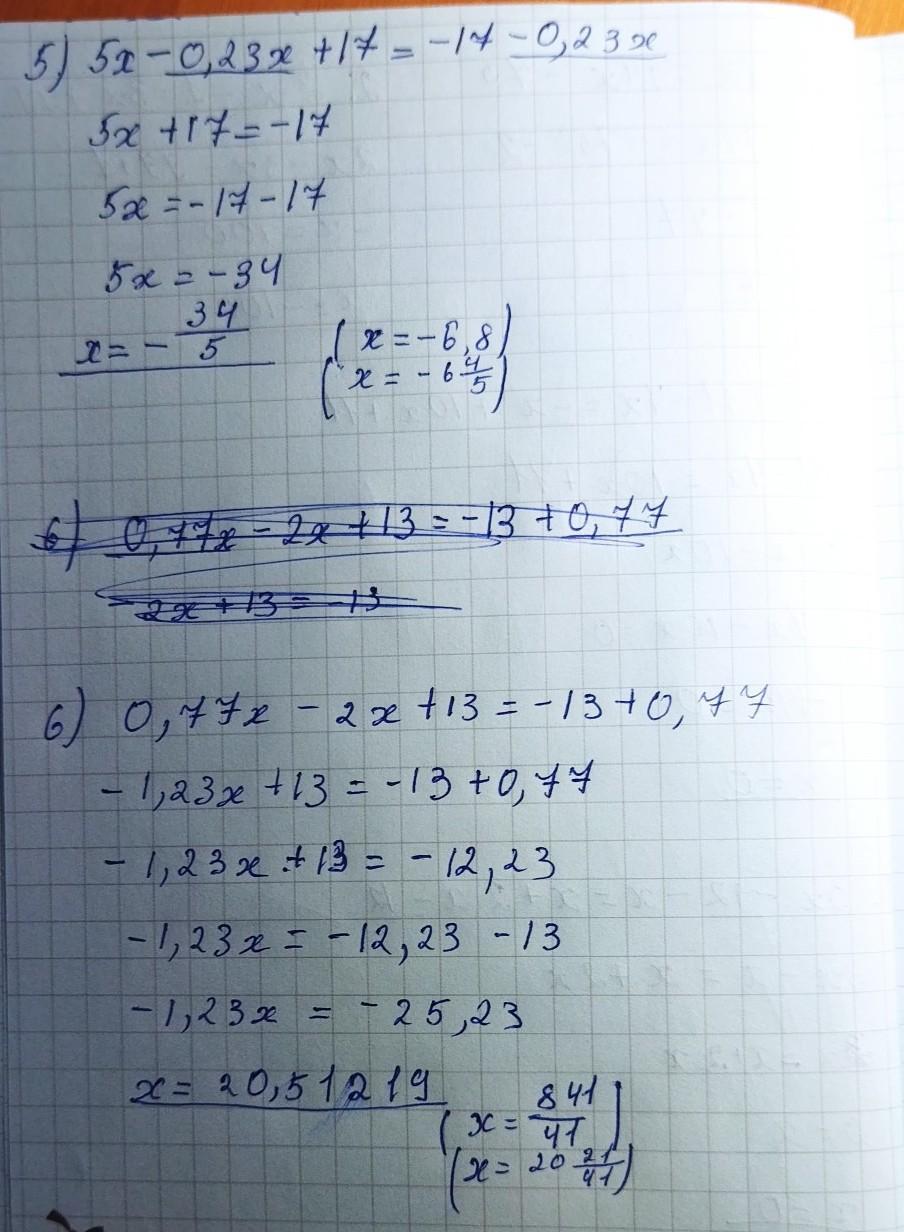 5) 5x - 0,23x + 17 = -17 - 0,23x
5x + 17 = -17
5x = -17 - 17
5x = -34
x = - 34/5 (x = -6,8)
(x = -6 4/5)
6) 0,77x - 2x + 13 = -13 + 0,77
-2x + 13 = -13
6) 0,77x - 2x + 13 = -13 + 0,77
-1,23x + 13 = -13 + 0,77
-1,23x + 13 = -12,23
-1,23x = -12,23 - 13
-1,23x = -25,23
x = 20,51219 (x = 841/41)
(x = 20 21/41)